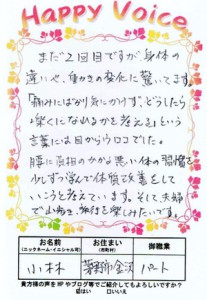 Happy Voice
まだ2回目ですが、身体の
違いや、動きの変化に驚いてます。
「痛みにばかり気にかけず、どうしたら
楽になるかを考える」という
言葉には目からウロコでした。
腰に負担のかかる悪い体の習慣を
少しずつ学んで体質改善をして
いこうと考えています。そして夫婦
で山歩き、旅行を楽しみたいです。
お名前 お住まい 御職業
(ニックネーム・イニシャル可) (市町村)
小林 金沢 パート
貴方様の声をHPやブログ等でご紹介してもよろしいですか?
はい 口いいえ